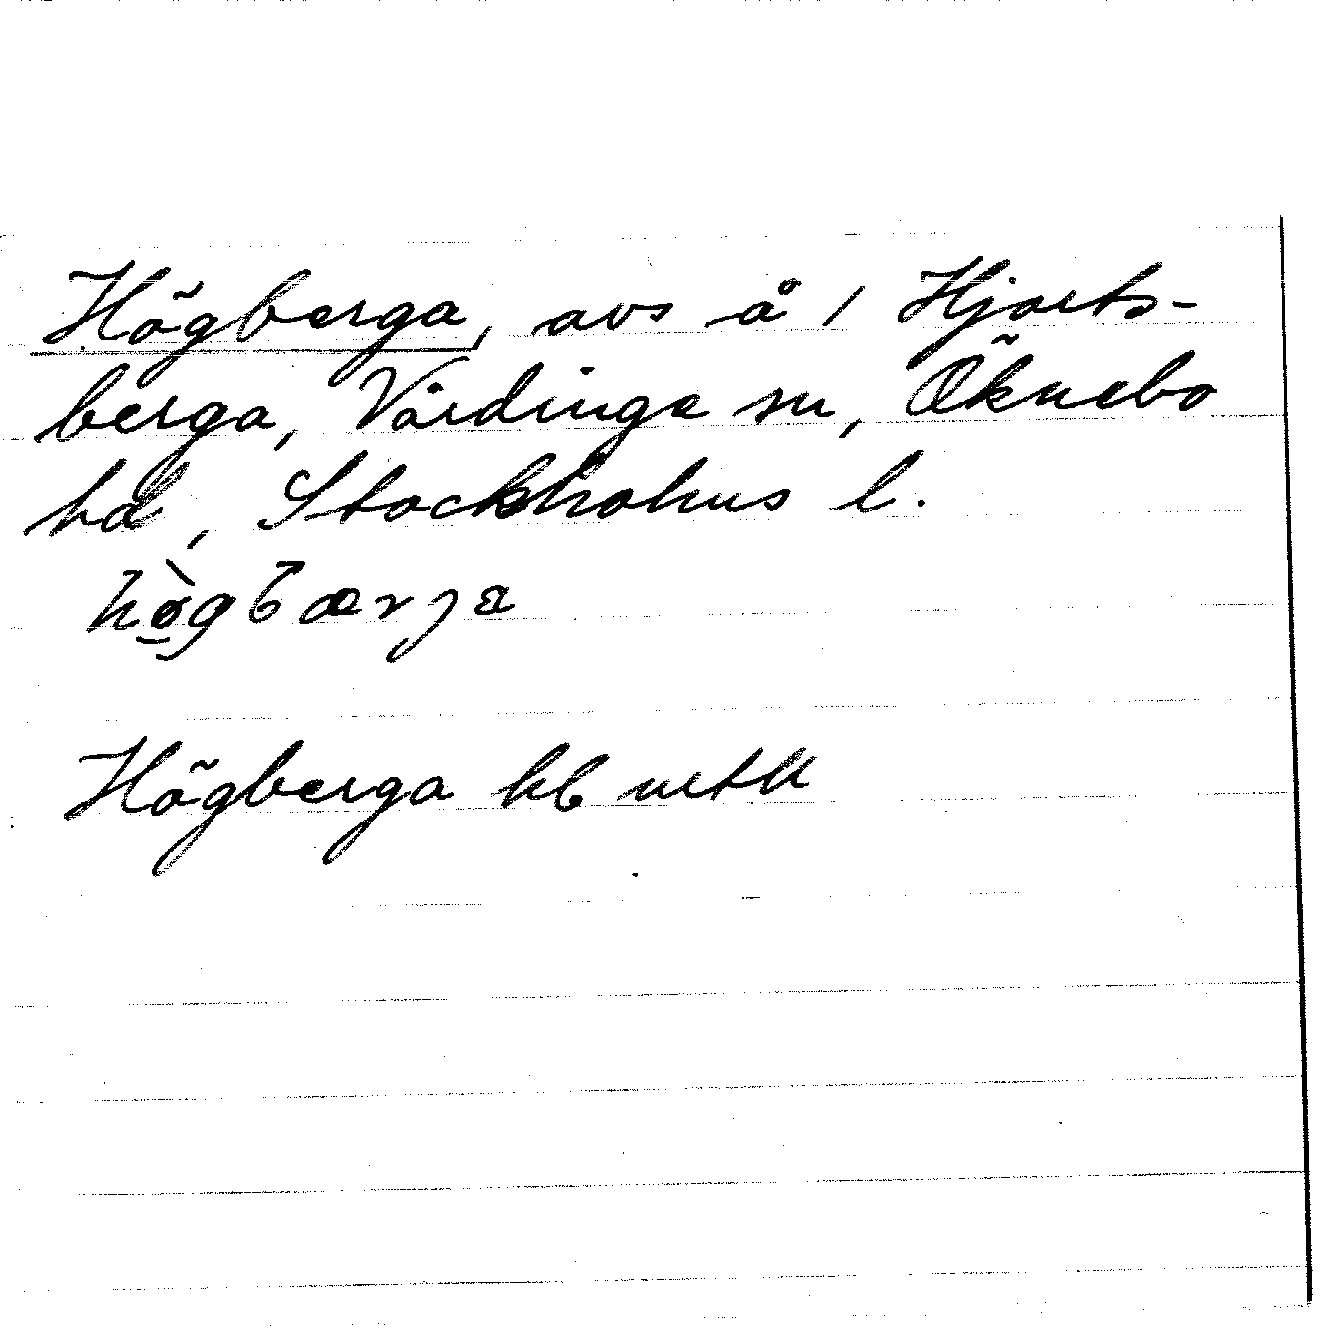 Högberga, avs å 1 Hjorts-
berga, Vårdinge sn, Öknebo
hd, Stockholms l.
hø̀gbærja
Högberga kb mtl